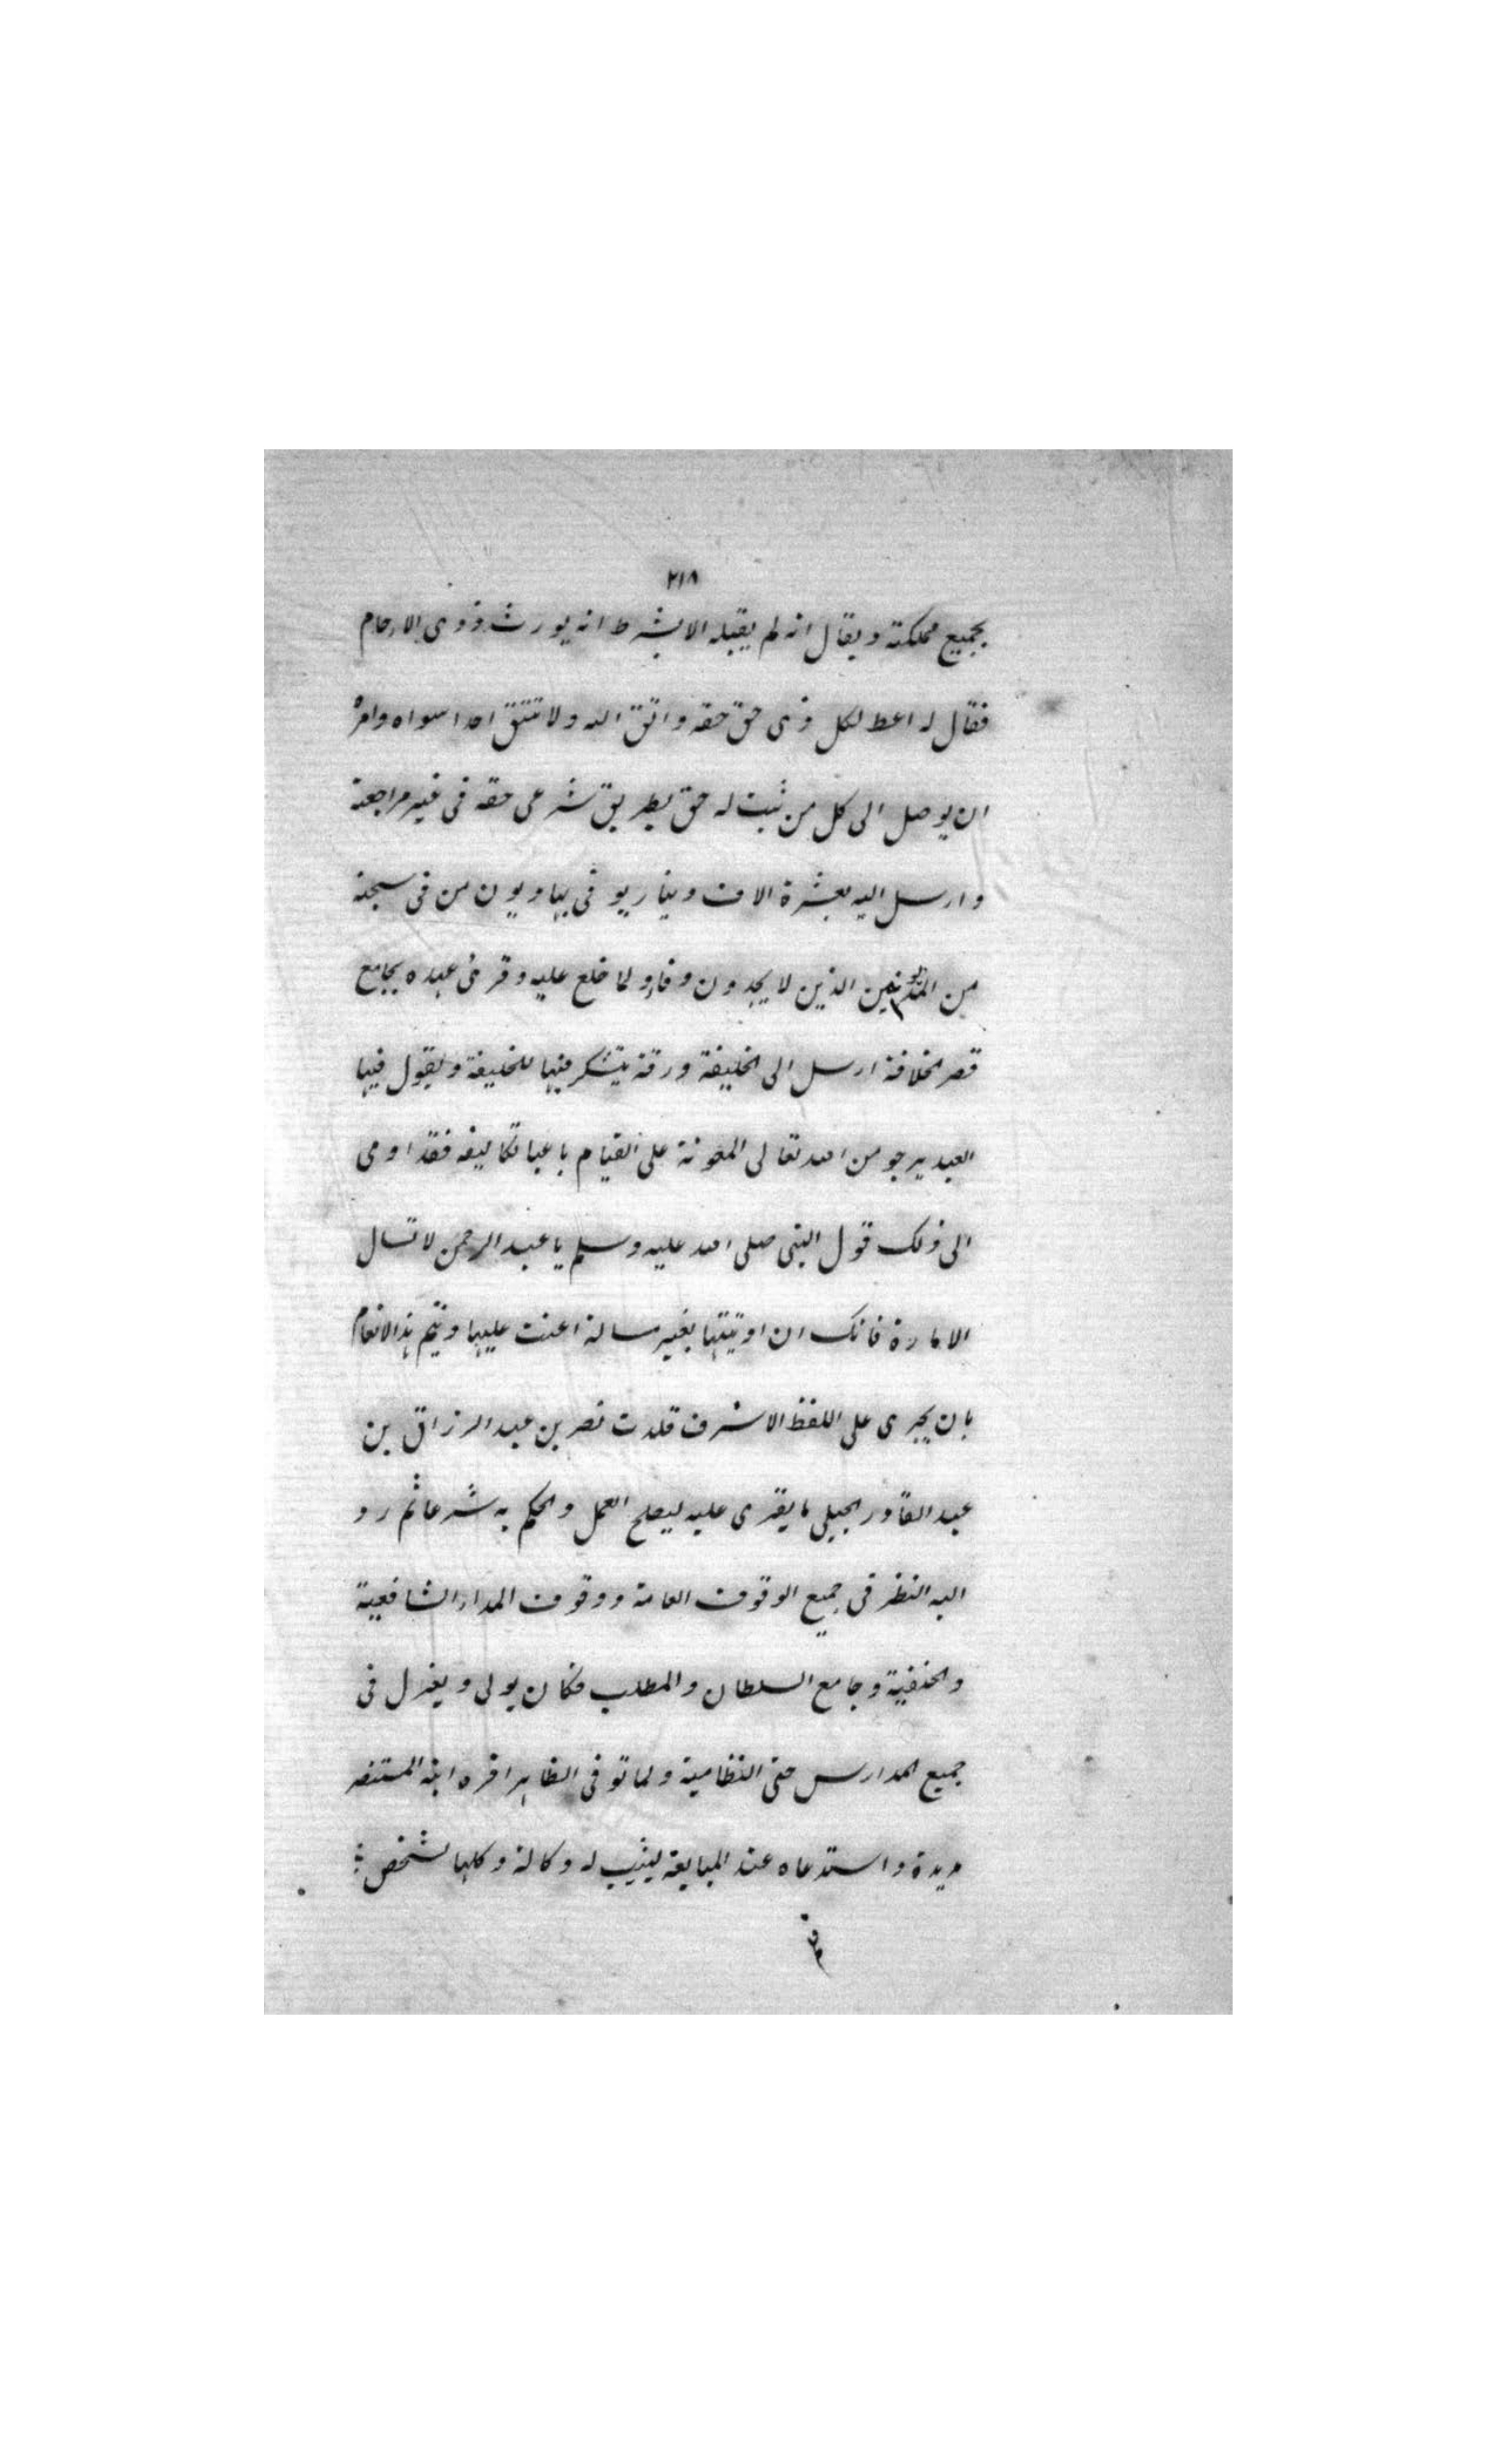 ٢١٨
بجميع مملكته ويقال انه لم يقبله الا بشرط انه يورث ذوى الارحام
فقال له اعط لكل ذى حق حقه واتق الله ولا تتق احدا سواه وامره
ان يوصل الى كل من ثبت له حق بطريق شرعى حقه فى غير مراجعة
وارسل اليه بعشرة الاف دينار يوفى بها ديون من فى سجنه
من الذين لا يجدون وفاء ولما خلع عليه وقرئ عهده بجامع
قصر الخلافة ارسل الى الخليفة ورقة يتشكر فيها للخليفة ويقول فيها
العبد يرجو من الله تعالى المعونة على القيام باعبا تكاليفه فقد اومى
الى ذلك قول النبى صلى الله عليه وسلم يا عبد الرحمن لا تسال
الامارة فانك ان اوتيتها بغير مسالة اعنت عليها ويتم هذا الانعام
بان يجرى على اللفظ الاشرف قلدت نصر بن عبد الرزاق بن
عبد القادر الجيلى ما يقرى عليه ليصلح العمل والحكم به شرعا ثم رد
اليه النظر فى جميع الوقوف العامة ووقوف المدارالشافعية
والحنفية وجامع السلطان والمطلب فكان يولى ويعزل فى
جميع المدارس حتى النظامية ولما توفى الظاهر اقره ابنه المستنصر
مديدة واستدعاه عند المبايعة ليثبت له وكالة وكلها لشخص